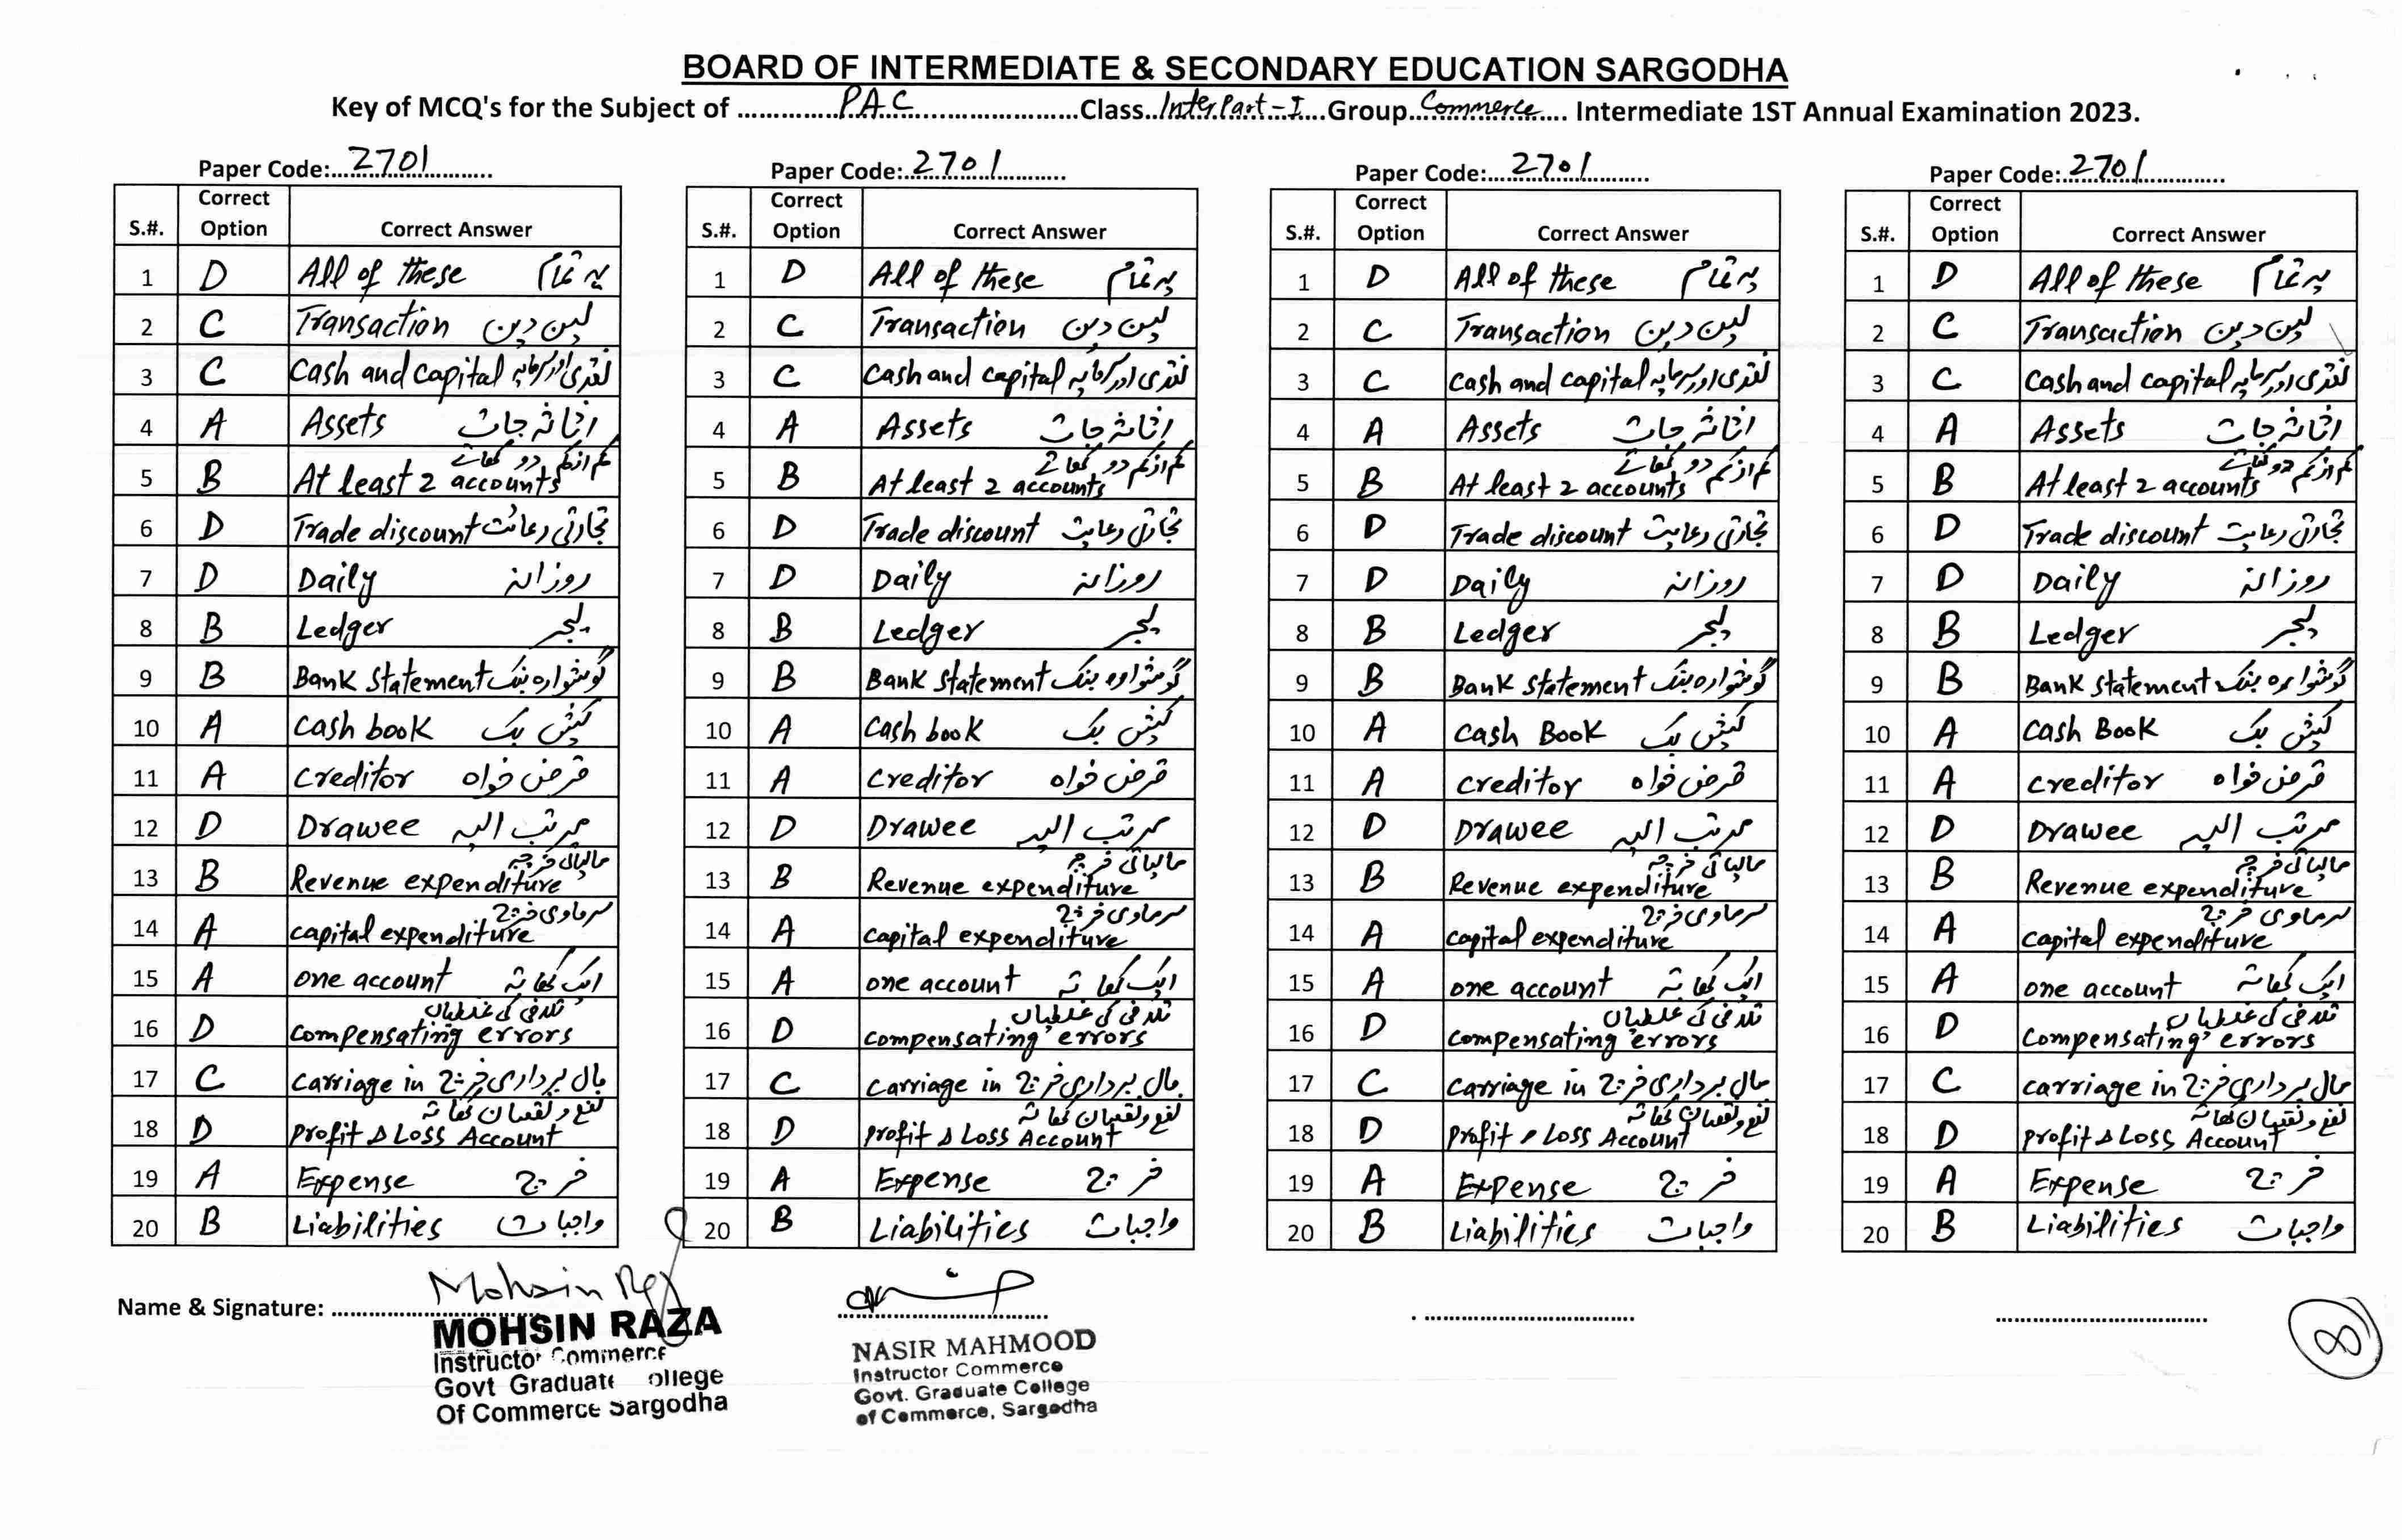 BOARD OF INTERMEDIATE & SECONDARY EDUCATION SARGODHA
Key of MCQ's for the Subject of PAC Class Inter Part-I Group Commerce Intermediate 1ST Annual Examination 2023.
Paper Code: 2701
S.#. Correct Option Correct Answer
1 D All of these یہ تمام
2 C Transaction لین دین
3 C Cash and capital نقدی اور سرمایہ
4 A Assets اثاثہ جات
5 B At least 2 accounts کم از کم دو کھاتے
6 D Trade discount تجارتی رعایت
7 D Daily روزانہ
8 B Ledger لیجر
9 B Bank Statement گوشوارہ بنک
10 A Cash book کیش بک
11 A Creditor قرض خواہ
12 D Drawee مرتب الیہ
13 B Revenue expenditure مالیاتی خرچہ
14 A capital expenditure سرماوی خرچ
15 A one account ایک کھاتہ
16 D compensating errors تلافی کی غلطیاں
17 C Carriage in مال برداری خرچ
18 D Profit & Loss Account نفع و نقصان کھاتہ
19 A Expense خرچ
20 B Liabilities واجبات
Paper Code: 2701
S.#. Correct Option Correct Answer
1 D All of these یہ تمام
2 C Transaction لین دین
3 C Cash and capital نقدی اور سرمایہ
4 A Assets اثاثہ جات
5 B At least 2 accounts کم از کم دو کھاتے
6 D Trade discount تجارتی رعایت
7 D Daily روزانہ
8 B Ledger لیجر
9 B Bank Statement گوشوارہ بنک
10 A Cash book کیش بک
11 A Creditor قرض خواہ
12 D Drawee مرتب الیہ
13 B Revenue expenditure مالیاتی خرچہ
14 A capital expenditure سرماوی خرچ
15 A one account ایک کھاتہ
16 D compensating errors تلافی کی غلطیاں
17 C Carriage in مال برداری خرچ
18 D profit & Loss Account نفع و نقصان کھاتہ
19 A Expense خرچ
20 B Liabilities واجبات
Paper Code: 2701
S.#. Correct Option Correct Answer
1 D All of these یہ تمام
2 C Transaction لین دین
3 C Cash and capital نقدی اور سرمایہ
4 A Assets اثاثہ جات
5 B At least 2 accounts کم از کم دو کھاتے
6 D Trade discount تجارتی رعایت
7 D Daily روزانہ
8 B Ledger لیجر
9 B Bank Statement گوشوارہ بنک
10 A Cash Book کیش بک
11 A Creditor قرض خواہ
12 D Drawee مرتب الیہ
13 B Revenue expenditure مالیاتی خرچہ
14 A capital expenditure سرماوی خرچ
15 A one account ایک کھاتہ
16 D compensating errors تلافی کی غلطیاں
17 C Carriage in مال برداری خرچ
18 D Profit & Loss Account نفع و نقصان کھاتہ
19 A Expense خرچ
20 B Liabilities واجبات
Paper Code: 2701
S.#. Correct Option Correct Answer
1 D All of these یہ تمام
2 C Transaction لین دین
3 C Cash and capital نقدی اور سرمایہ
4 A Assets اثاثہ جات
5 B At least 2 accounts کم از کم دو کھاتے
6 D Trade discount تجارتی رعایت
7 D Daily روزانہ
8 B Ledger لیجر
9 B Bank Statement گوشوارہ بنک
10 A Cash Book کیش بک
11 A Creditor قرض خواہ
12 D Drawee مرتب الیہ
13 B Revenue expenditure مالیاتی خرچہ
14 A capital expenditure سرماوی خرچ
15 A one account ایک کھاتہ
16 D compensating errors تلافی کی غلطیاں
17 C carriage in مال برداری خرچ
18 D profit & Loss Account نفع و نقصان کھاتہ
19 A Expense خرچ
20 B Liabilities واجبات
Name & Signature:
Mohsin Raza
MOHSIN RAZA
Instructor Commerce
Govt Graduate College
Of Commerce Sargodha
NASIR MAHMOOD
Instructor Commerce
Govt. Graduate College
of Commerce, Sargodha